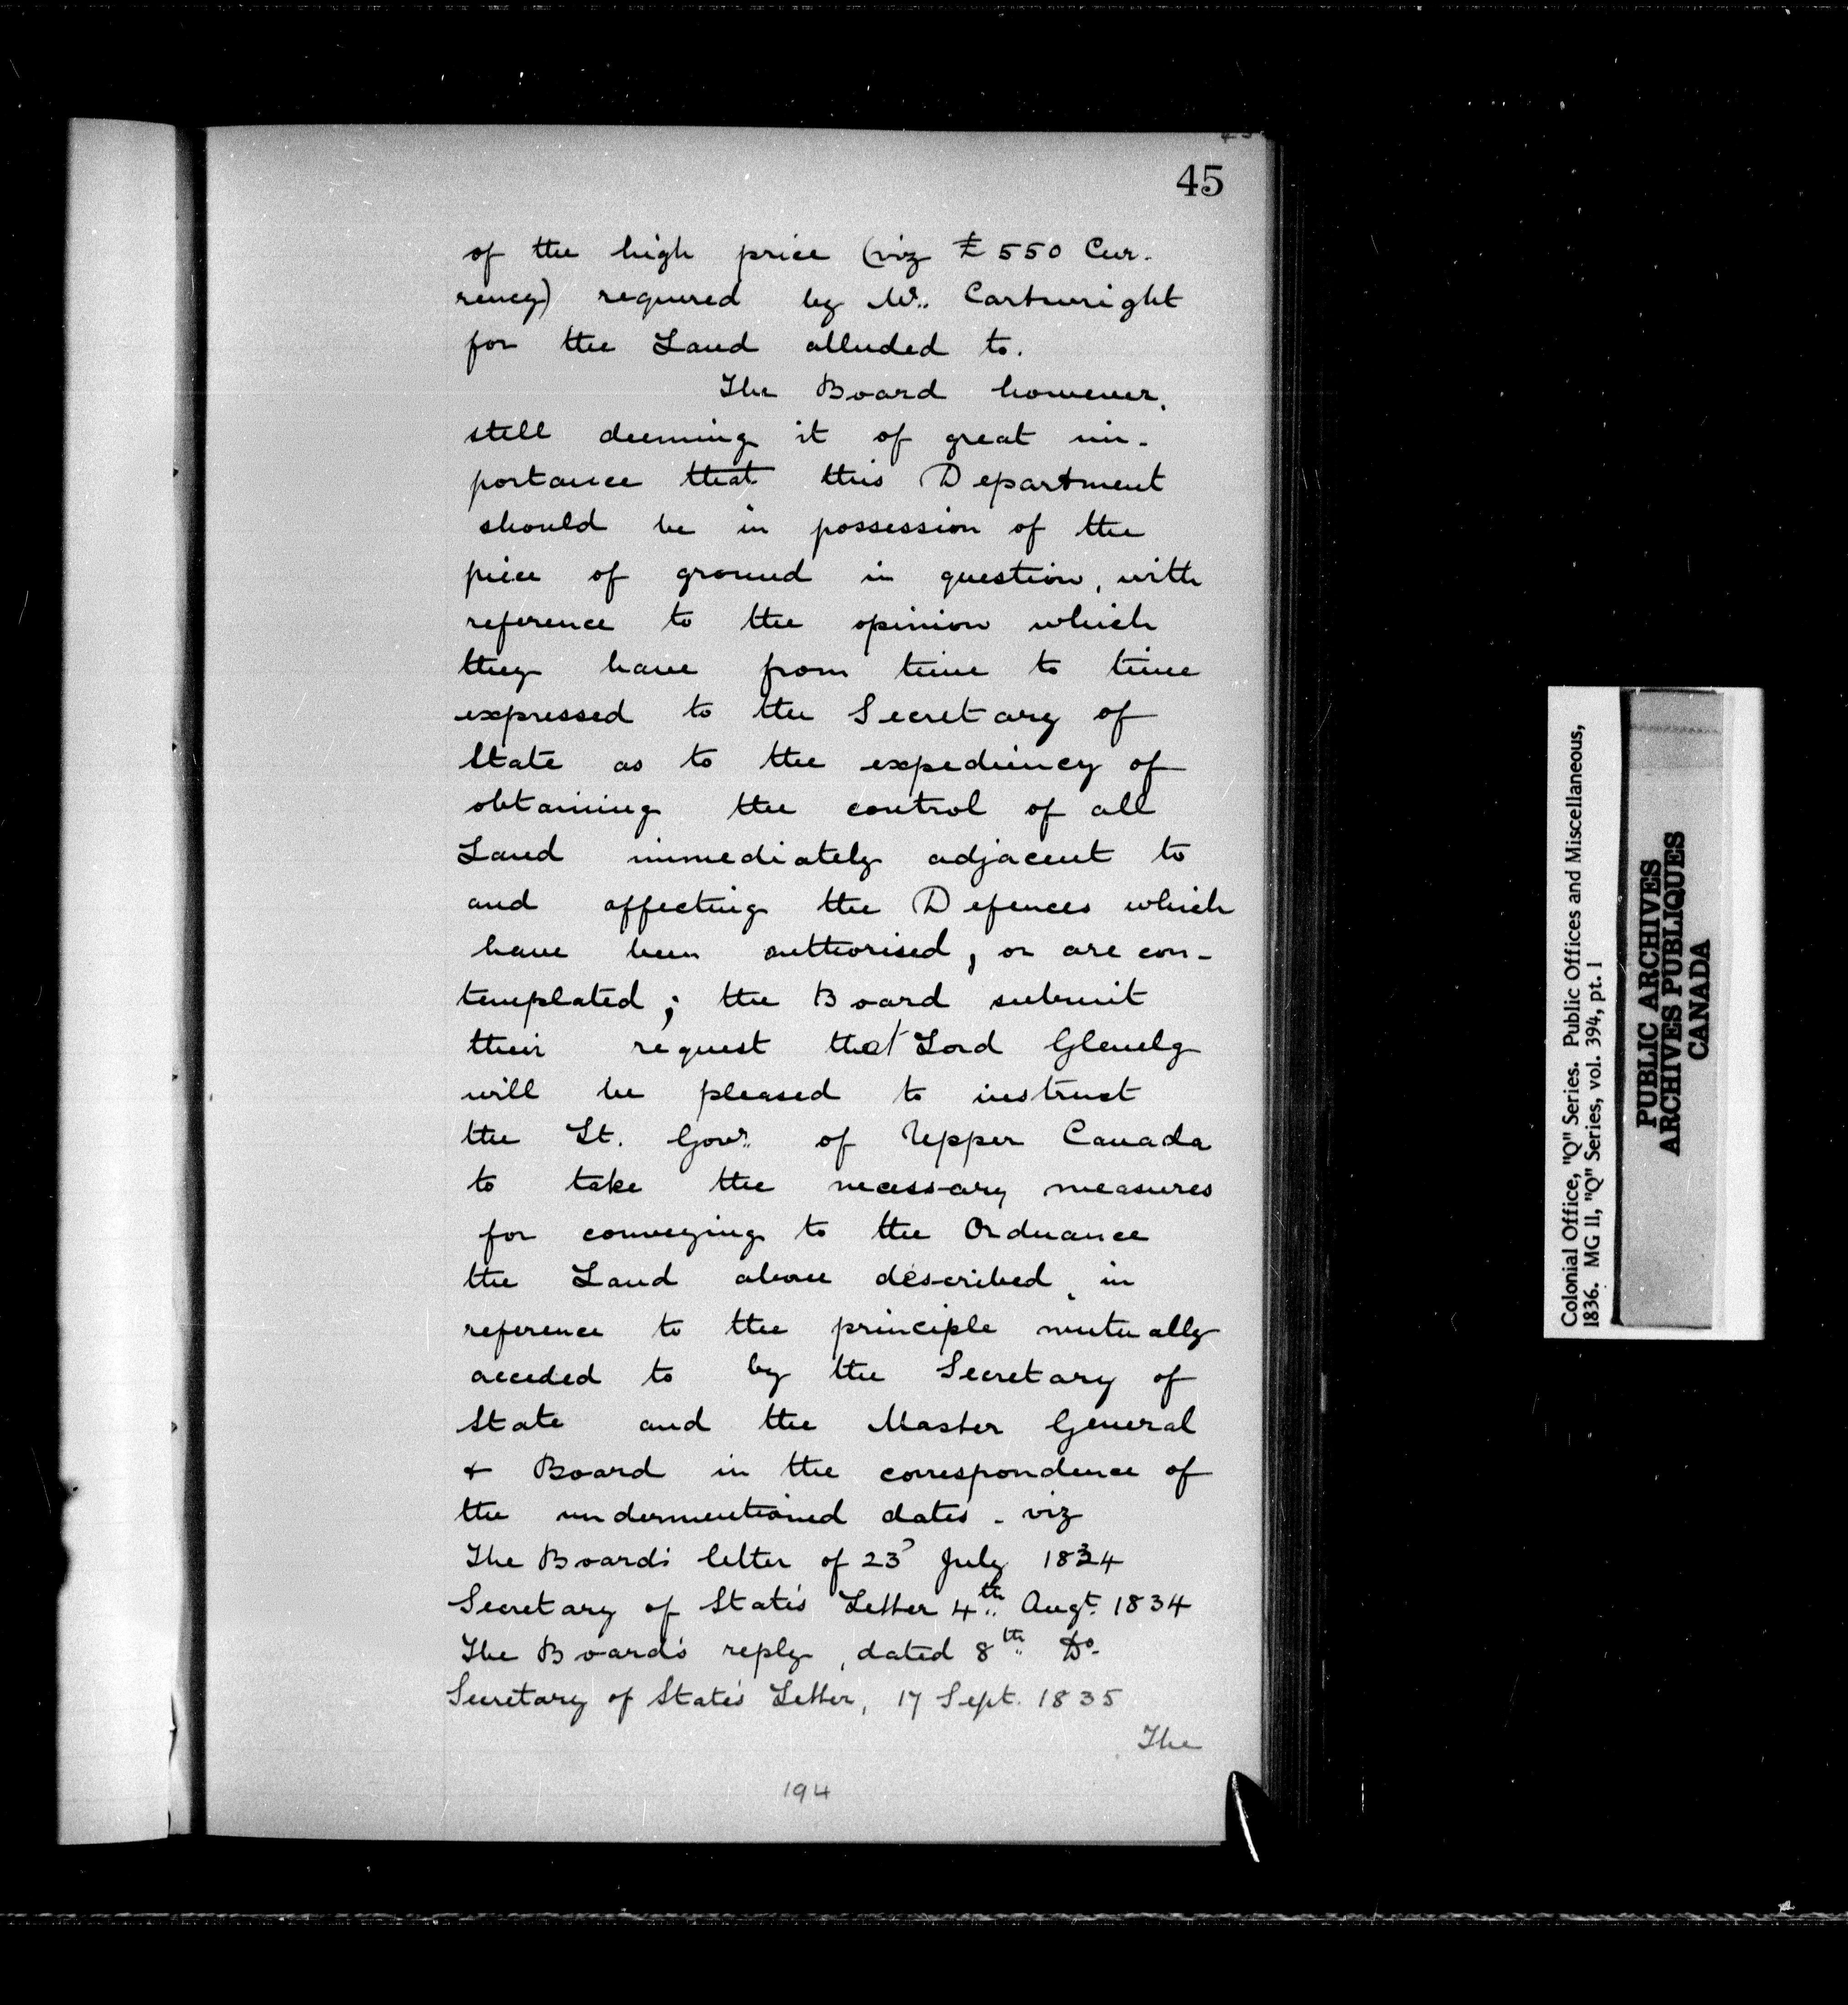 45
of the high price (viz £550 Cur-
rency) required by Mr. Cartwright
for the Land alluded to.
The Board however,
still deeming it of great im-
portance that this Department
should be in possession of the
piece of ground in question, with
reference to the opinion which
they have from time to time
expressed to the Secretary of
State as to the expediency of
obtaining the control of all
Land immediately adjacent to
and affecting the Defences which
have been authorised, or are con-
templated; the Board submit
their request that Lord Glenelg
will be pleased to instruct
the Lt. Govr. of Upper Canada
to take the necessary measures
for conveying to the Ordnance
the Land above described, in
reference to the principle mutually
acceded to by the Secretary of
State and the Master General
& Board in the correspondence of
the undermentioned dates - viz
The Board's letter of 23d July 1834
Secretary of State's Letter 4th Augt. 1834
The Board's reply, dated 8th Do.
Secretary of State's Letter, 17 Sept. 1835
The
194
Colonial Office, "Q" Series. Public Offices and Miscellaneous,
1836. MG 11, "Q" Series, vol. 394, pt. 1
PUBLIC ARCHIVES
ARCHIVES PUBLIQUES
CANADA